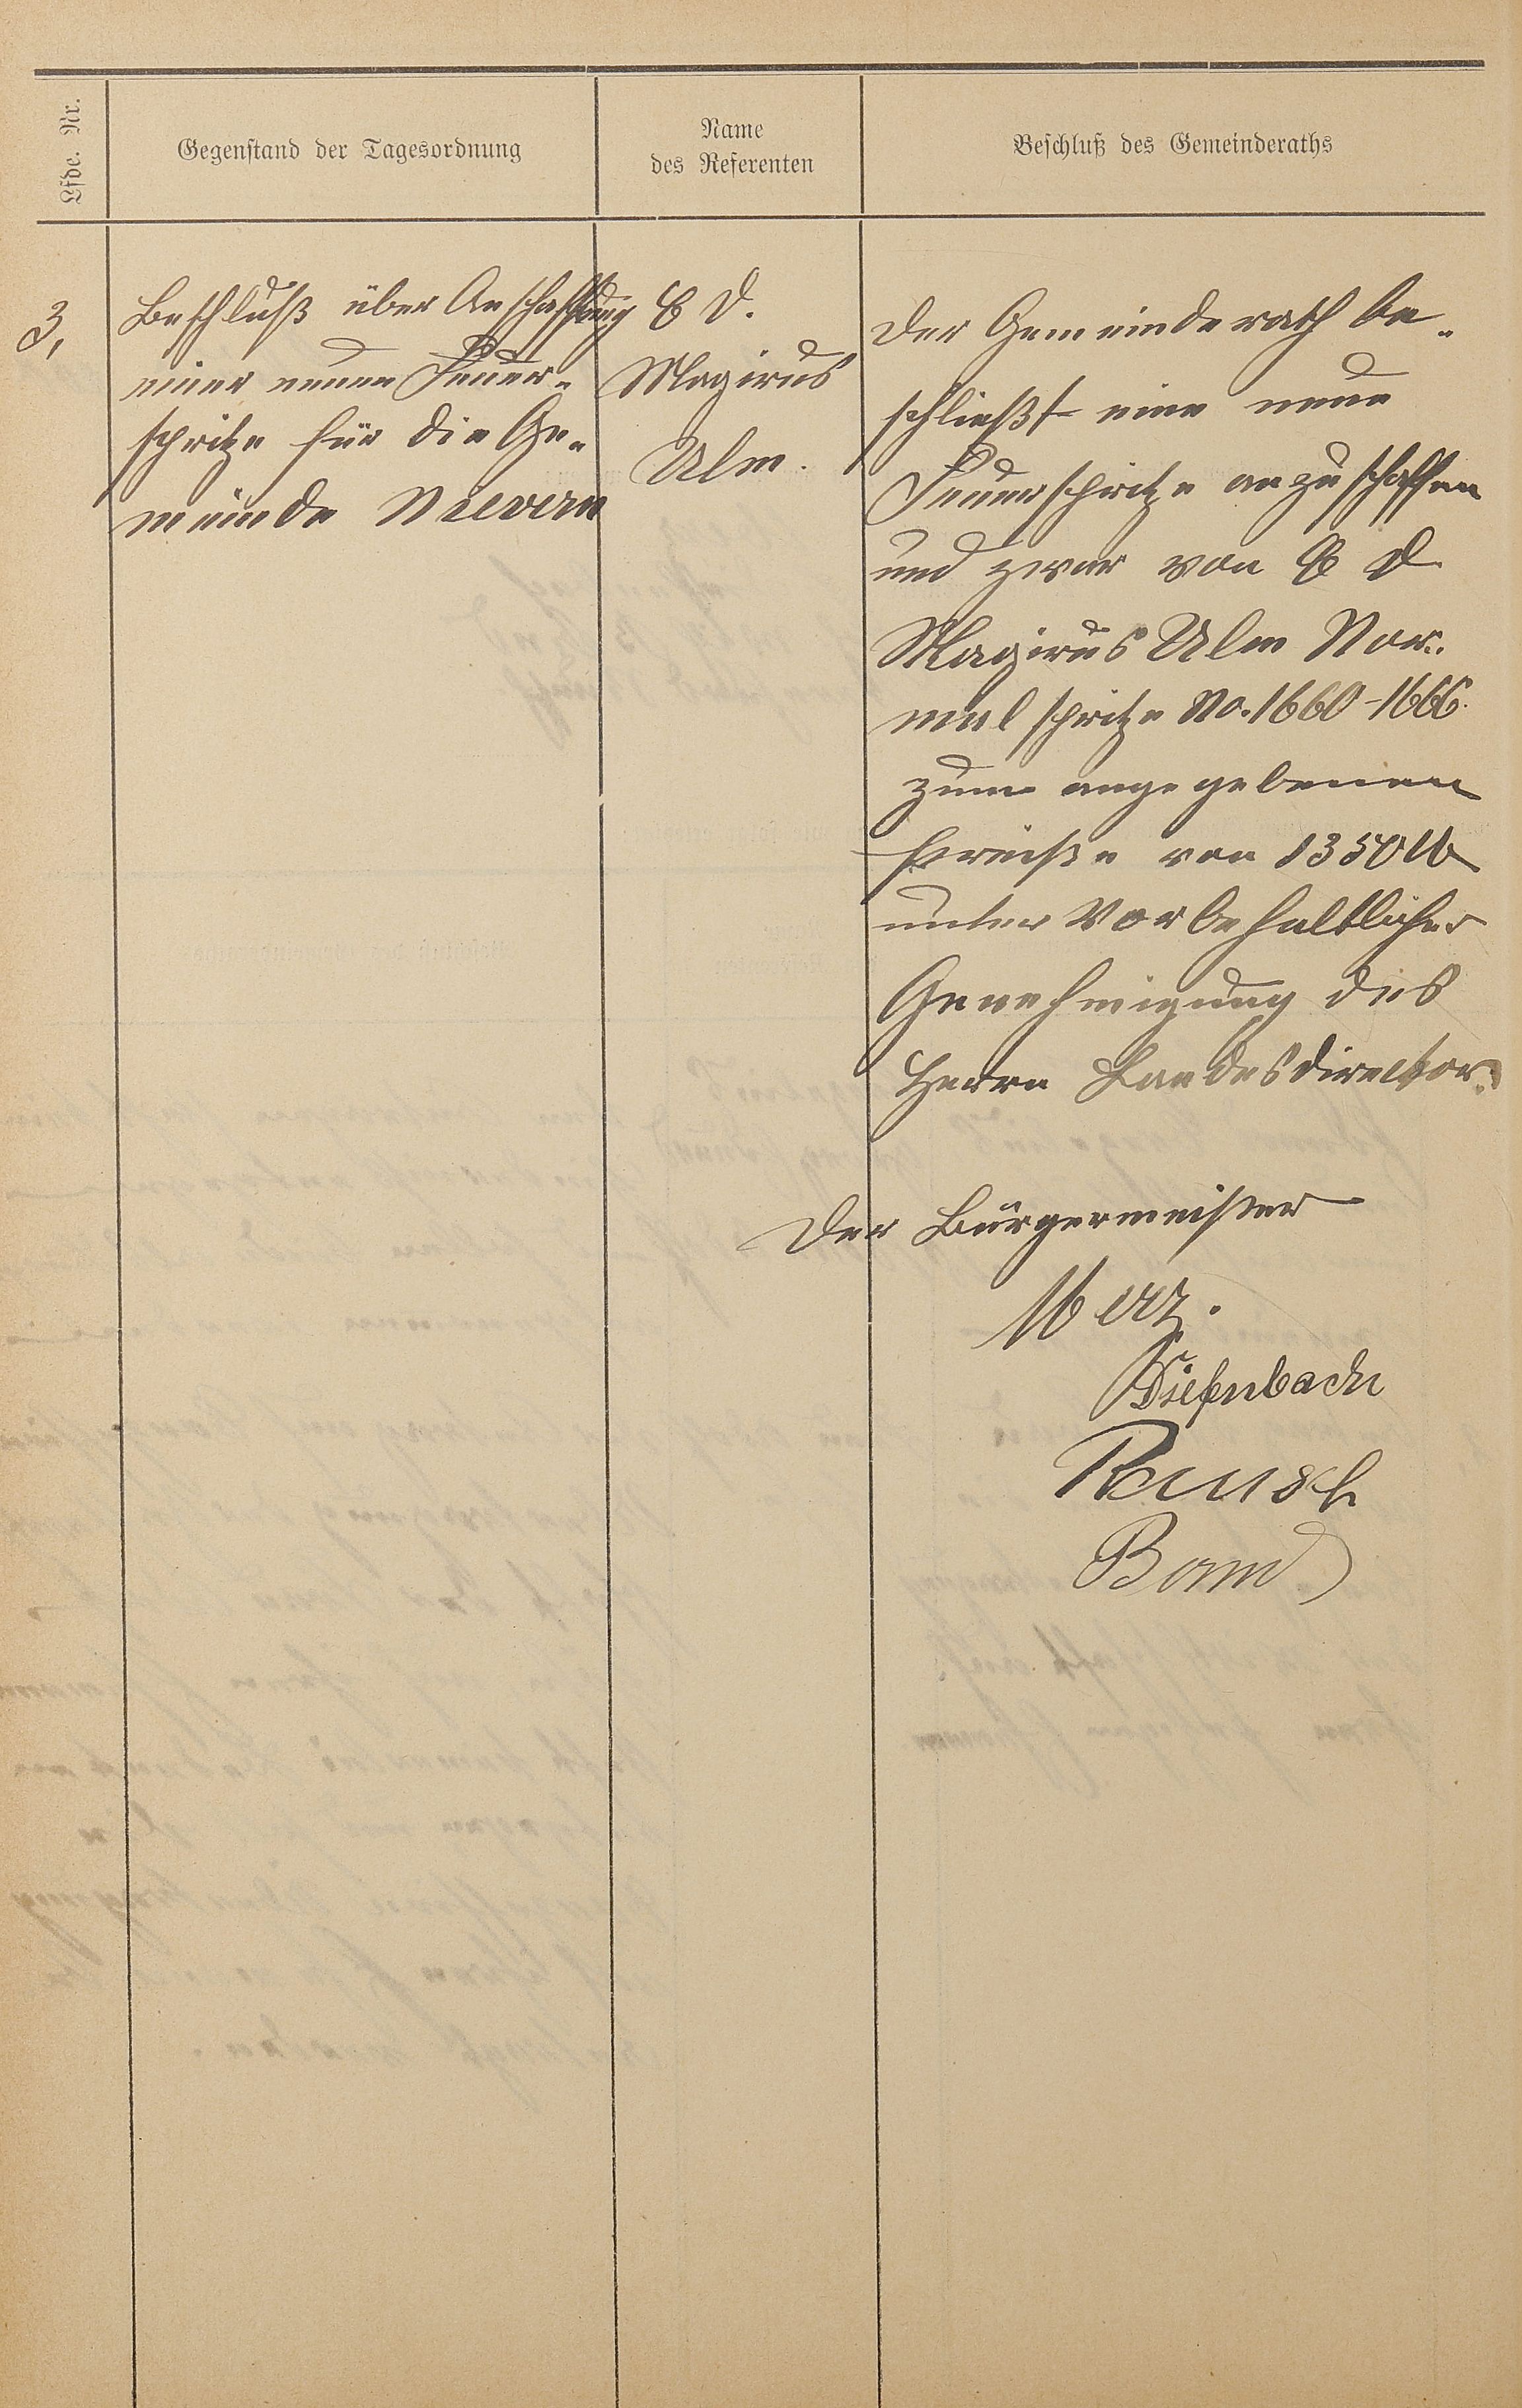 Lfde. Nr.
Gegenstand der Tagesordnung
Name
des Referenten
Beschluß des Gemeinderaths
3,
Beschluß über Anschaffung
einer neuen Feuer-
spritze für die Ge-
meinde Nievern
C D.
Magirus
Ulm.
Der Gemeinderath be-
schließt eine neue
Feuerspritze anzuschaffen
und zwar von C D
Magirus Ulm Nor-
mal spritze No. 1660-1666.
zum angegebenen
Preiße von 1350 M
unter Vorbehaltlicher
Genehmigung des
Herrn Landesdirector.
Der Bürgermeister
Merz.
Diefenbach
Reusch